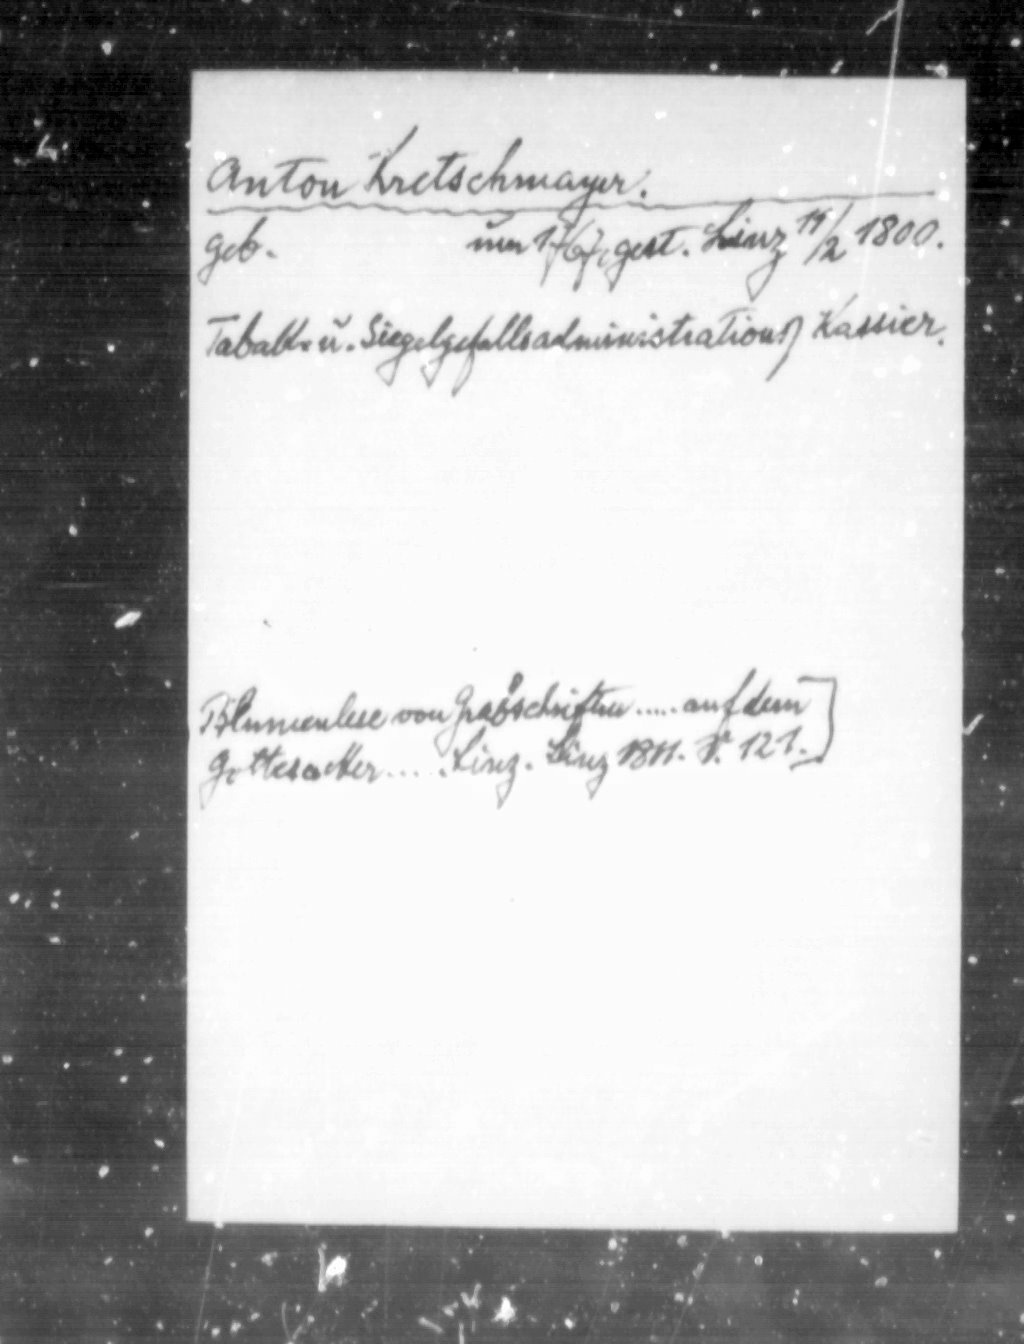 Anton Kretschmayer.
geb. um 1767, gest. Linz 11/2 1800.
Tabak- u. Siegelgefällsadministrations Kassier.
Blumenlese von Grabschriften ..... auf dem
Gottesacker ..... Linz. Linz 1811. S. 121.]